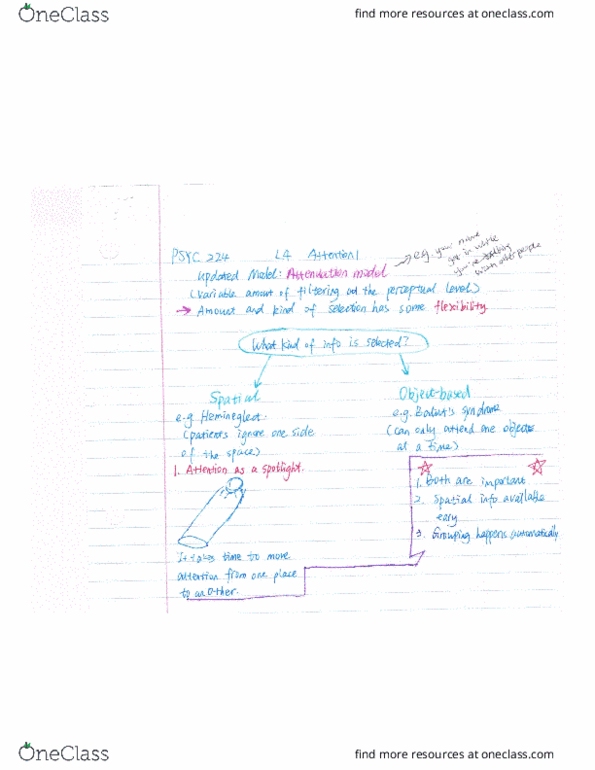 OneClass
find more resources at oneclass.com
PSYC 224 L4 Attention 1
e.g. your name
get in while
you're talking
with other people
Updated Model: Attenuation model
(Variable amount of filtering at the perceptual level)
→ Amount and kind of selection has some flexibility
What kind of info is selected?
Spatial
e.g. Hemineglect.
(patients ignore one side
of the space)
1. Attention as a spotlight.
It takes time to move
attention from one place
to another.
Object-based
e.g. Balint's syndrome
(can only attend one objects
at a time)
1. Both are important
2. Spatial info available
early
3. Grouping happens automatically
OneClass
find more resources at oneclass.com